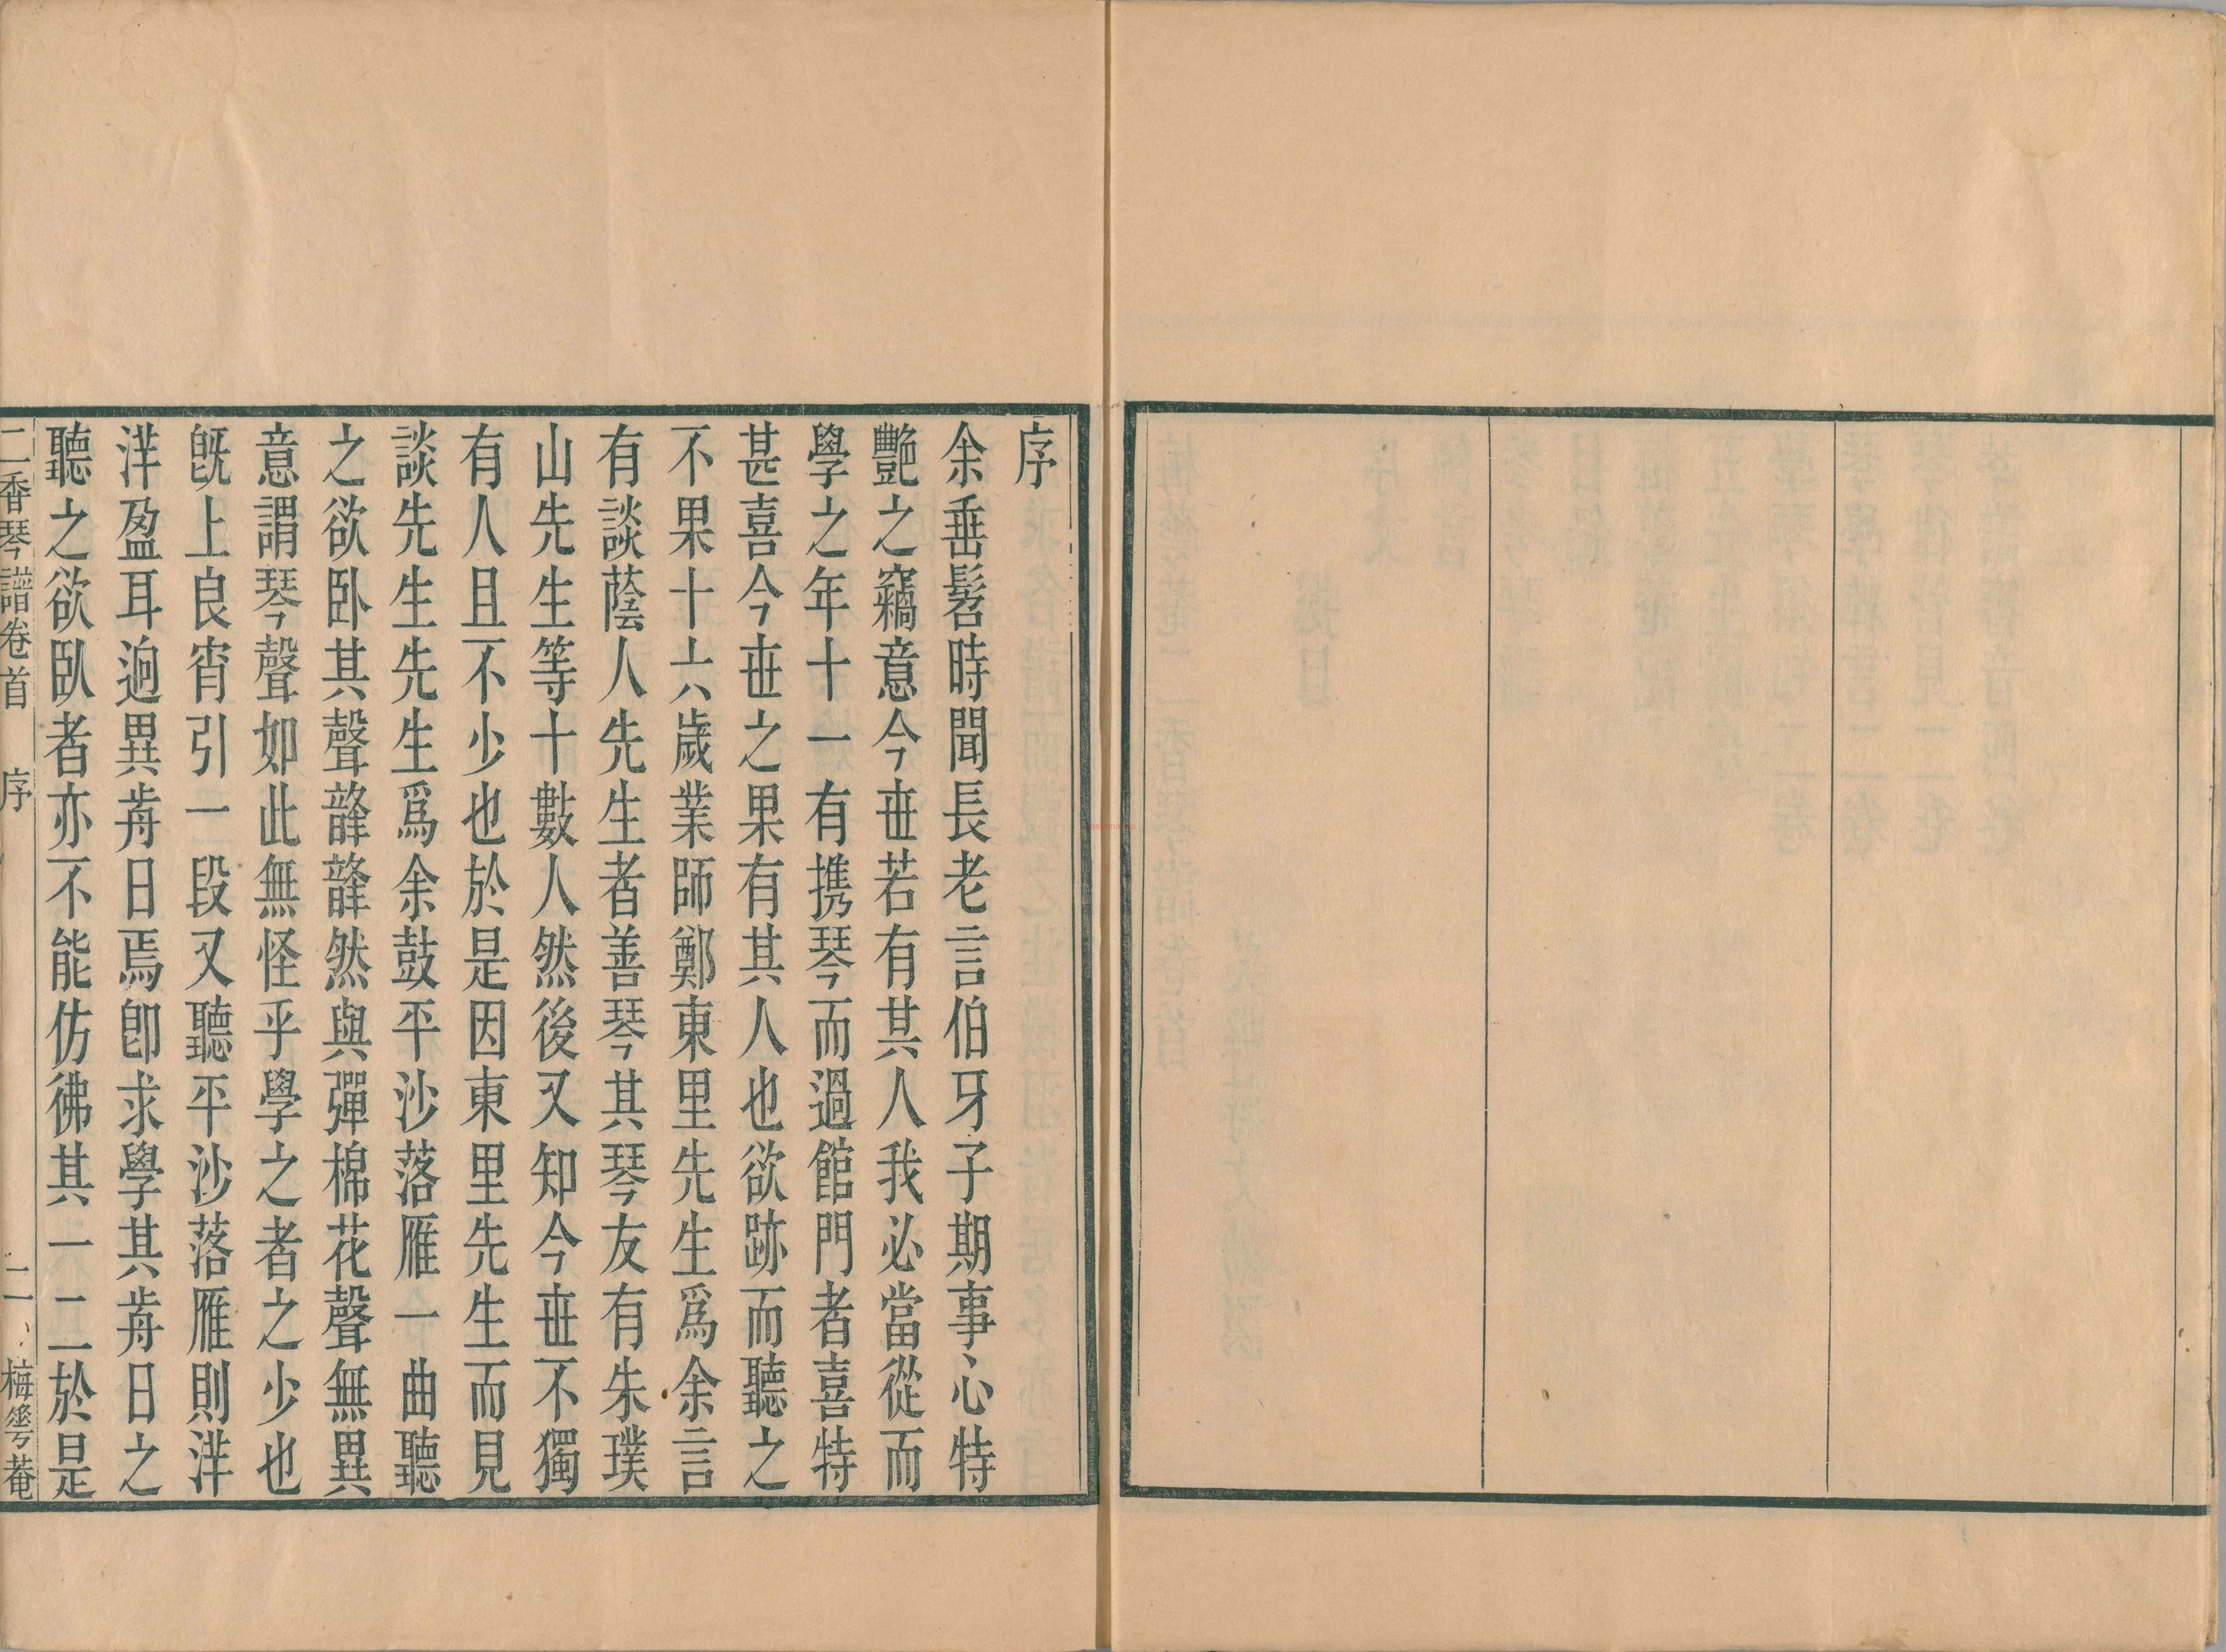 序
余垂髫時聞長老言伯牙子期事心特
艷之竊意今世若有其人我必當從而
學之年十一有携琴而過館門者喜特
甚喜今世之果有其人也欲跡而聽之
不果十六歲業師鄭東里先生爲余言
有談蔭人先生者善琴其琴友有朱璞
山先生等十數人然後又知今世不獨
有人且不少也於是因東里先生而見
談先生先生爲余鼓平沙落雁一曲聽
之欲卧其聲韸韸然與彈棉花聲無異
意謂琴聲如此無怪乎學之者之少也
旣上良宵引一段又聽平沙落雁則洋
洋盈耳逈異歬日焉卽求學其歬日之
聽之欲臥者亦不能仿彿其一二於是
二香琴譜卷首 序 二 梅雩菴